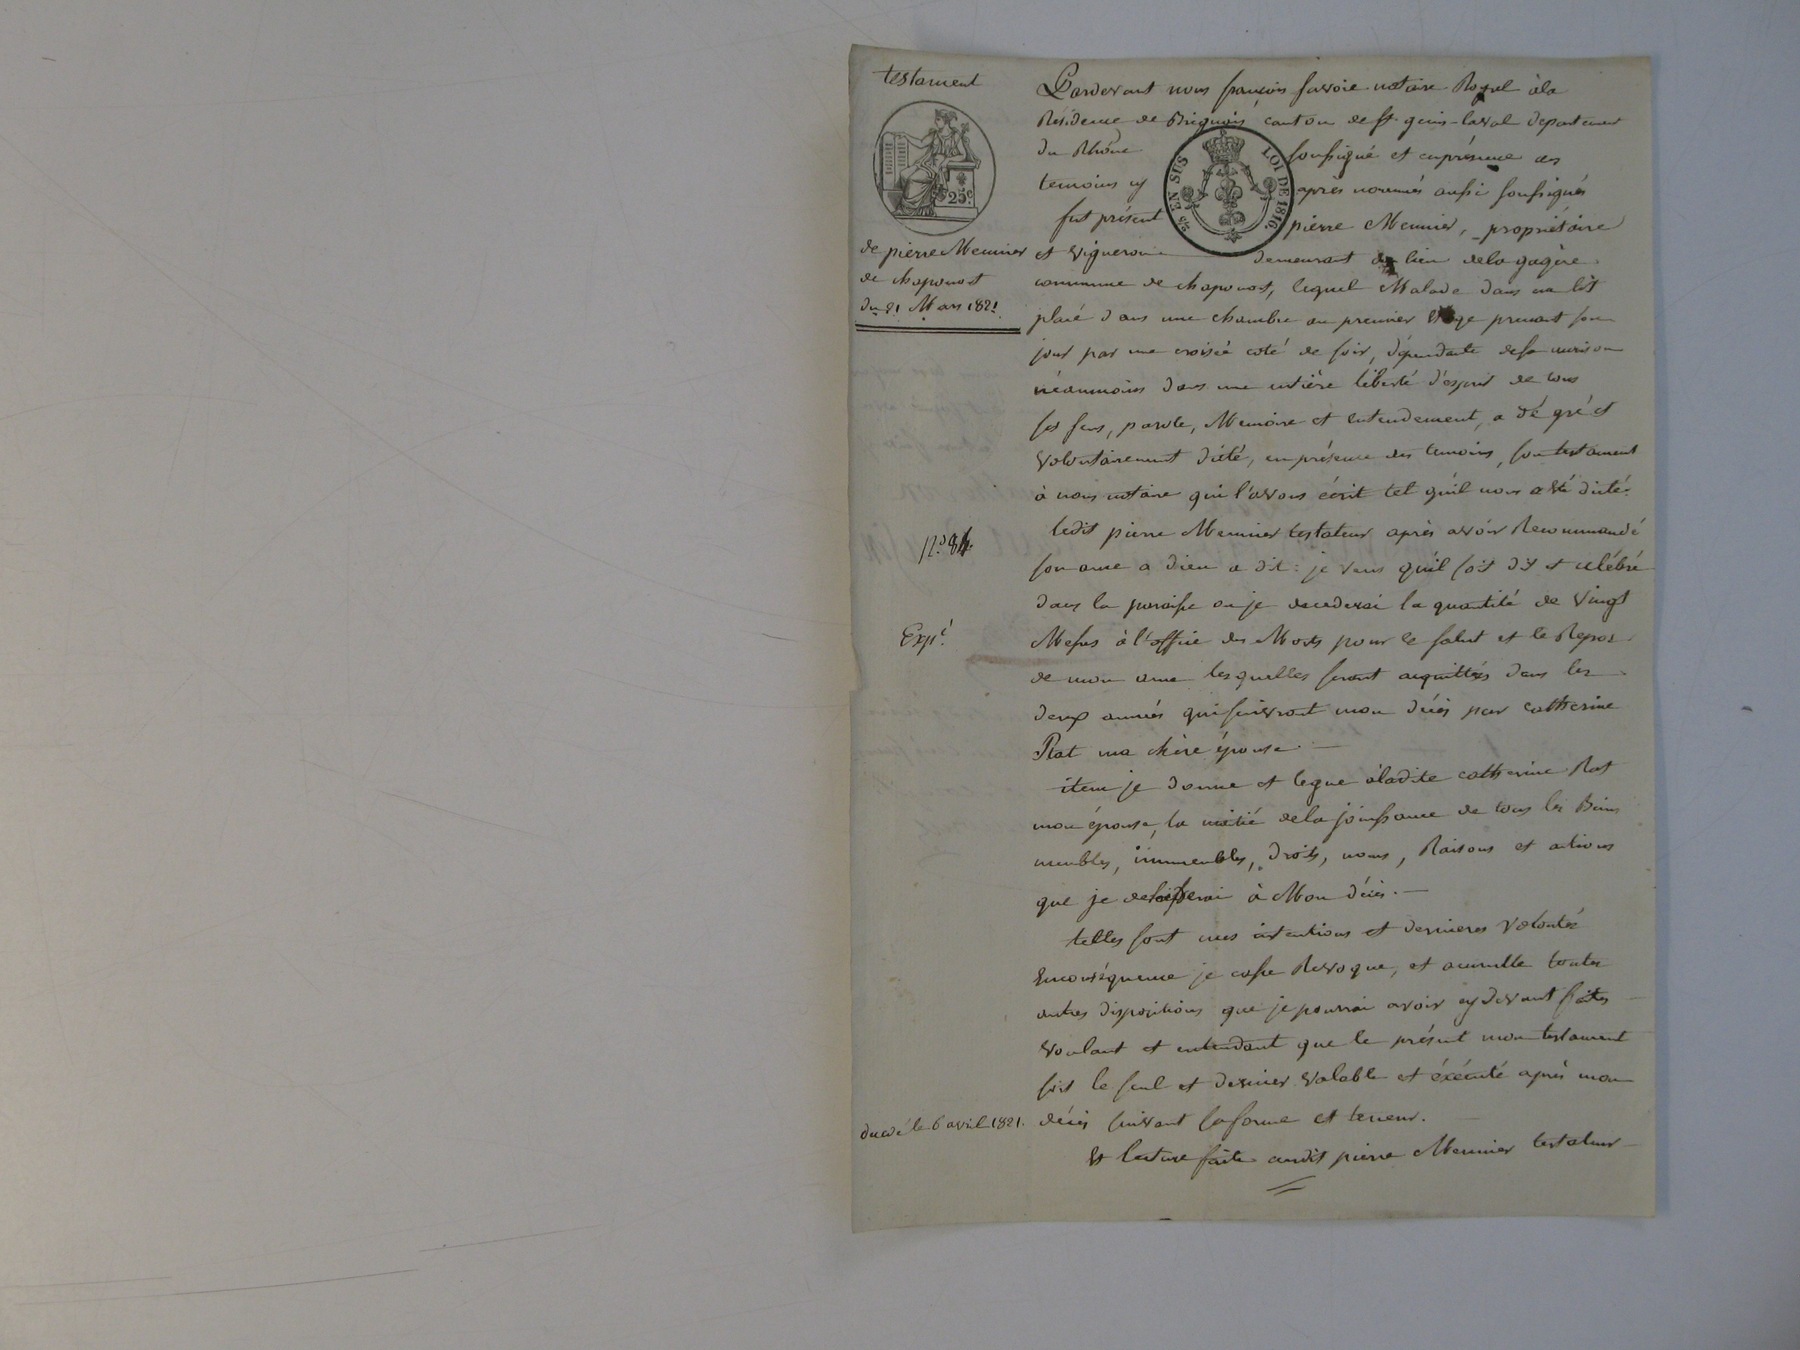 testament
25c
de pierre Meunier
de chaponost
du 21 Mars 1821
n.° 84.
Exp.é
décédé le 6 avril 1821.
Pardevant nous françois favoie notaire Royal à la
Résidence de Brignais, canton de St. genis-laval departement
du Rhône soussigné et en présence des
temoins cy après nommés aussi soussignés
EN SUS LOI DE 1816.
fut présent pierre Meunier, propriétaire
et vigneron demeurant au lieu de la gagère
commune de chaponost, lequel Malade dans un lit
placé dans une chambre au premier étage prenant son
jour par une croisée coté de soir, dépendante de sa maison
néanmoins dans une entière liberté d'esprit de tous
ses sens, parole, Memoire et entendement, a dé gré et
volontairement dicté, en présence des temoins, son testament
à nous notaire qui l'avons écrit tel qu'il nous a été dicté.
ledit pierre Meunier testateur après avoir Recommandé
son ame a dieu a dit : je veux qu'il soit dit et célébré
dans la paroisse ou je decederai la quantité de vingt
Messes à l'office des Morts pour le salut et le Repos
de mon ame lesquelles seront acquittées dans les
deux années qui suivront mon décès par catherine
Rat ma chère épouse.
item je donne et legue à ladite catherine Rat
mon épouse, la moitié de la jouissance de tous les Biens
meubles, immeubles, droits, noms, Raisons et actions
que je delaisserai à Mon décès.
telles sont mes intentions et dernieres volontés
Enconséquence je casse Revoque, et annulle toutes
autres dispositions que je pourrai avoir cy devant faites
voulant et entendant que le présent mon testament
soit le seul et dernier valable et éxécuté après mon
décès suivant sa forme et teneur.
Et lecture faite audit pierre Meunier testateur